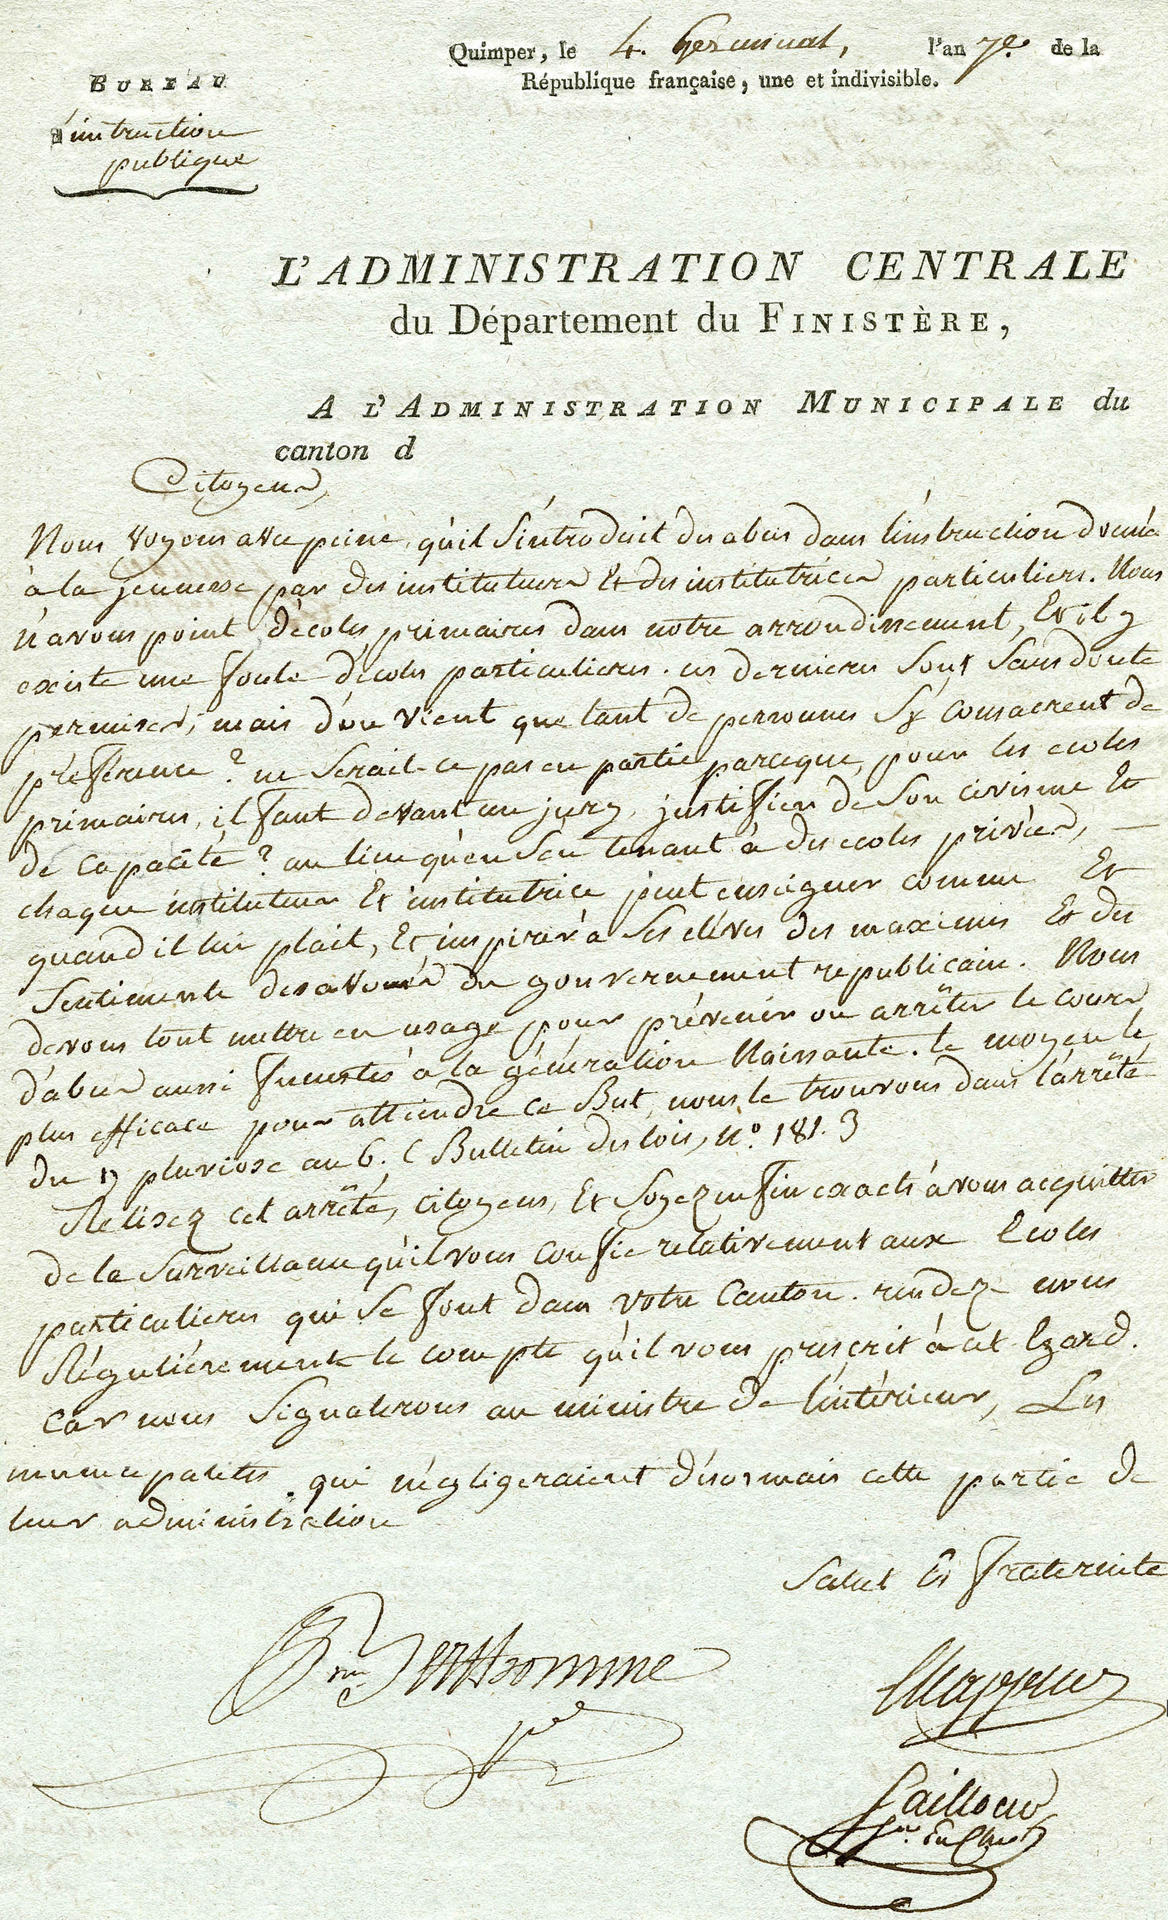 Quimper, le 4. Germinal, l'an 7e. de la
République française, une et indivisible.
BUREAU
d'instruction
publique
L'ADMINISTRATION CENTRALE
du Département du FINISTÈRE,
A L'ADMINISTRATION MUNICIPALE du
canton d
Citoyens,
Nous voyons avec peine, qu'il s'introduit des abus dans l'instruction donnée
à la jeunesse par des instituteurs et des institutrices particuliers. Nous
n'avons point d'écoles primaires dans notre arrondissement, et il y
existe une foule d'écoles particulieres. ces dernieres sont sans doute
permises; mais d'ou vient que tant de personnes s'y consacrent de
préférence? ne serait-ce pas en partie parceque, pour les ecoles
primaires, il faut devant un jury, justifier de son civisme et
de capacité? au lieu qu'en s'en tenant à des ecoles privées,
chaque instituteur et institutrice peut enseigner comme et
quand il lui plait, et inspirer à ses elèves des maximes et des
sentiments desavoués du gouvernement republicain. Nous
devons tout mettre en usage pour prévenir ou arrêter le cours
d'abus aussi funestes à la génération naissante. le moyen le
plus efficace pour atteindre ce but, nous le trouvons dans l'arrêté
du 17 pluviose an 6. ( Bulletin des lois, n.º 181. )
Relisez cet arrêté, citoyens, et soyez enfin exacts à vous acquitter
de la surveillance qu'il vous confie relativement aux ecoles
particulieres qui se font dans votre canton. rendez nous
régulièrement le compte qu'il vous prescrit à cet egard.
car nous signalerons au ministre de l'intérieur, les
municipalités qui négligeraient désormais cette partie de
leur administration
Salut et fraternité
Berthomme